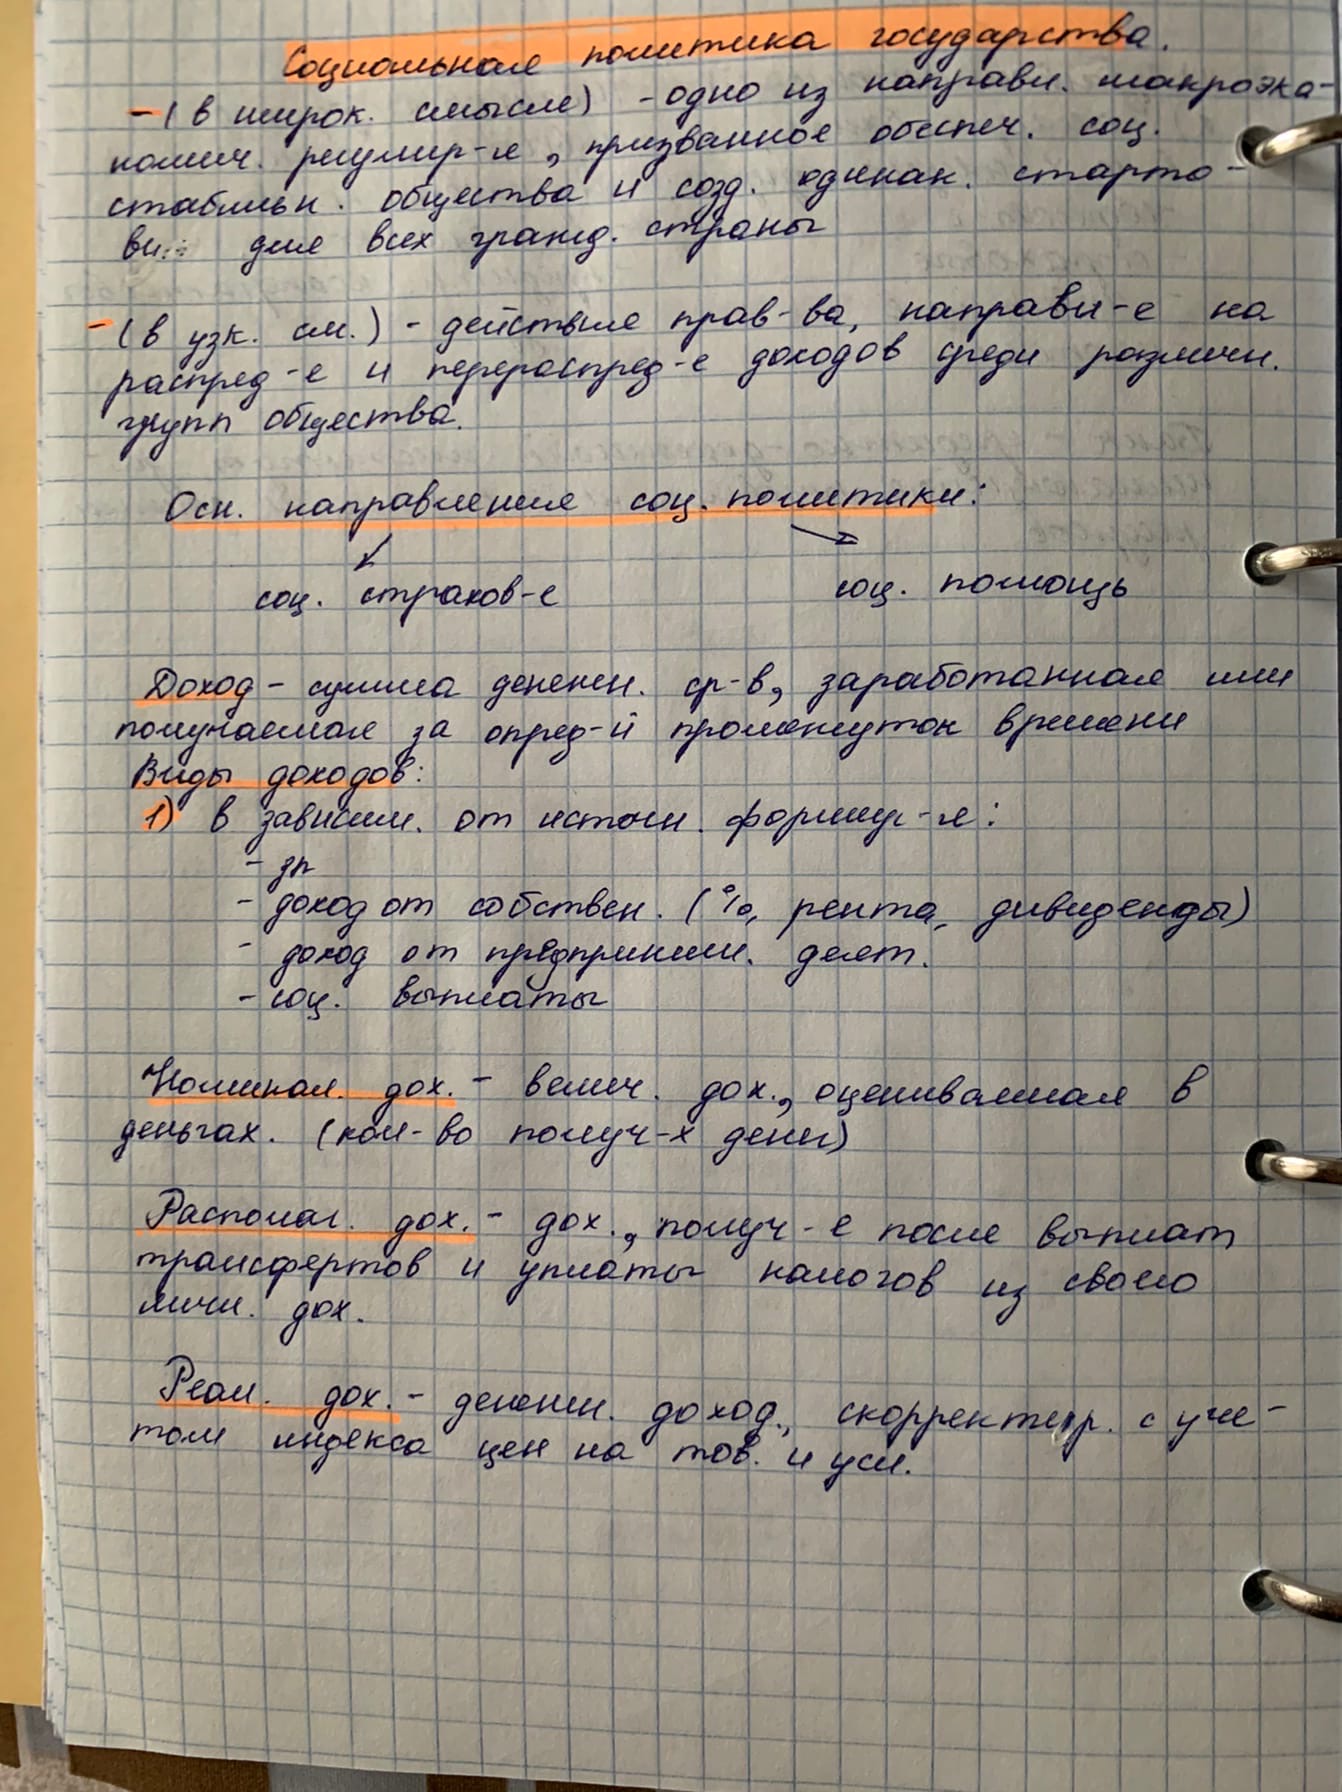 Социальная политика государства.
- (в широк. смысле) - одно из направл. макроэко-
номич. регулир-я, призванное обеспеч. соц.
стабильн. общества и созд. одинак. старто-
для всех гражд. страны
- (в узк. см.) - действие прав-ва, направл-е на
распред-е и перераспред-е доходов среди различн.
групп общества.
Осн. направления соц. политики:
соц. страхов-е соц. помощь
Доход - сумма денежн. ср-в, заработанная или
получаемая за опред-й промежуток времени
Виды доходов:
1) в зависим. от источн. формир-я:
- зп
- доход от собствен. (%, рента, дивиденды)
- доход от предприним. деят.
- соц. выплаты
Номинал. дох. - велич. дох., оцениваемая в
деньгах. (кол-во получ-х денег)
Располаг. дох. - дох., получ-е после выплат
трансфертов и уплаты налогов из своего
личн. дох.
Реал. дох. - денежн. доход., скорректир. с уче-
том индекса цен на тов. и усл.